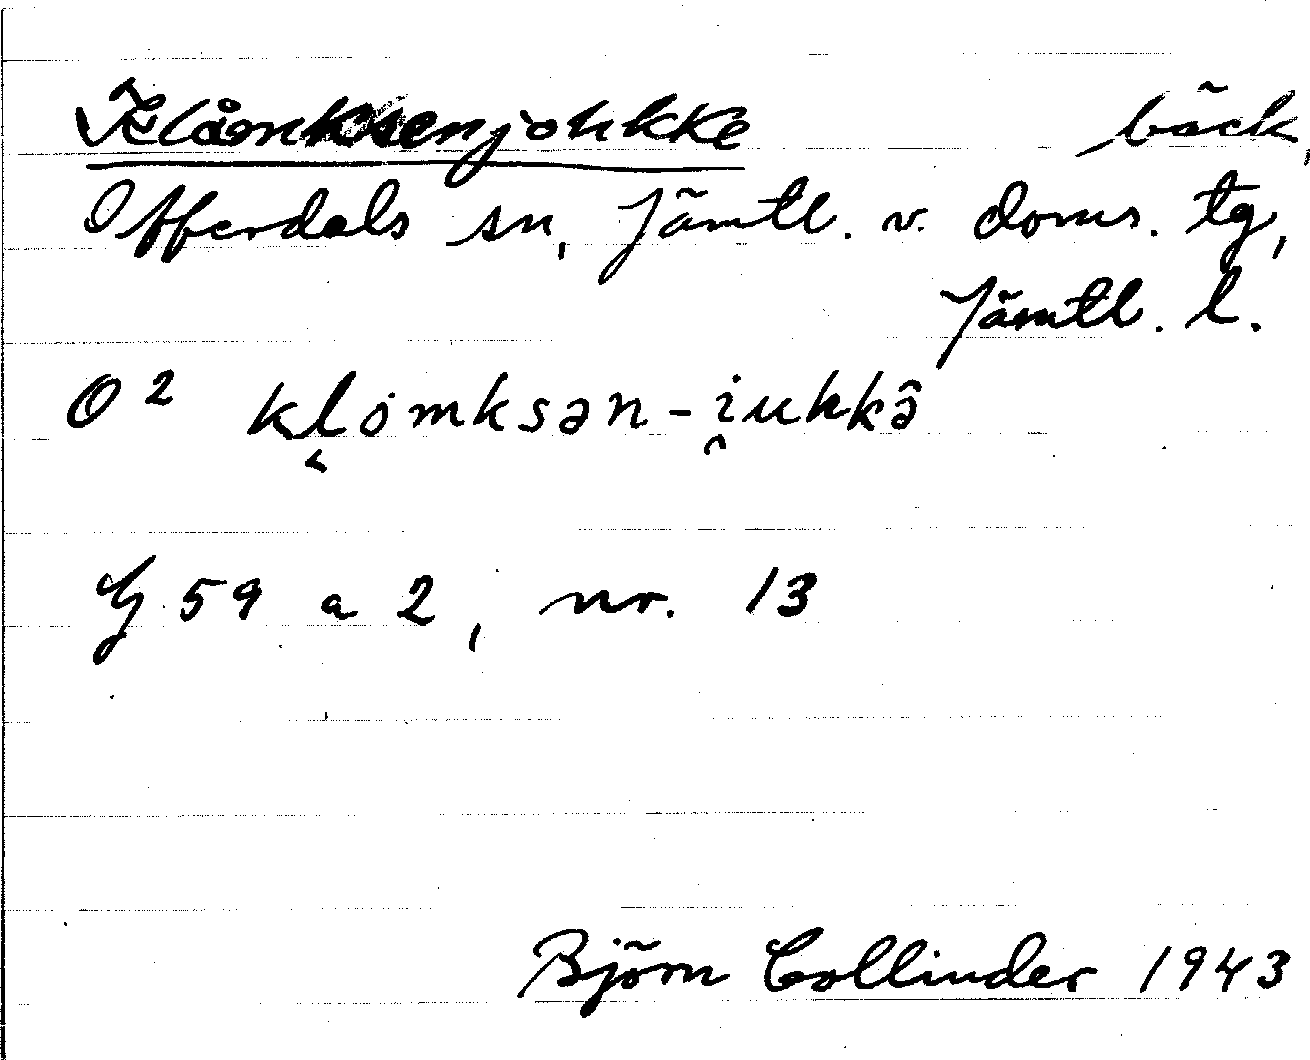 Klåmksenjohkke bäck,
Offerdals sn, Jämtl. v. doms. tg,
Jämtl. l.
O² kl̬omksən-i̯uhkkə̂
G 59 a 2, nr. 13
Björn Collinder 1943